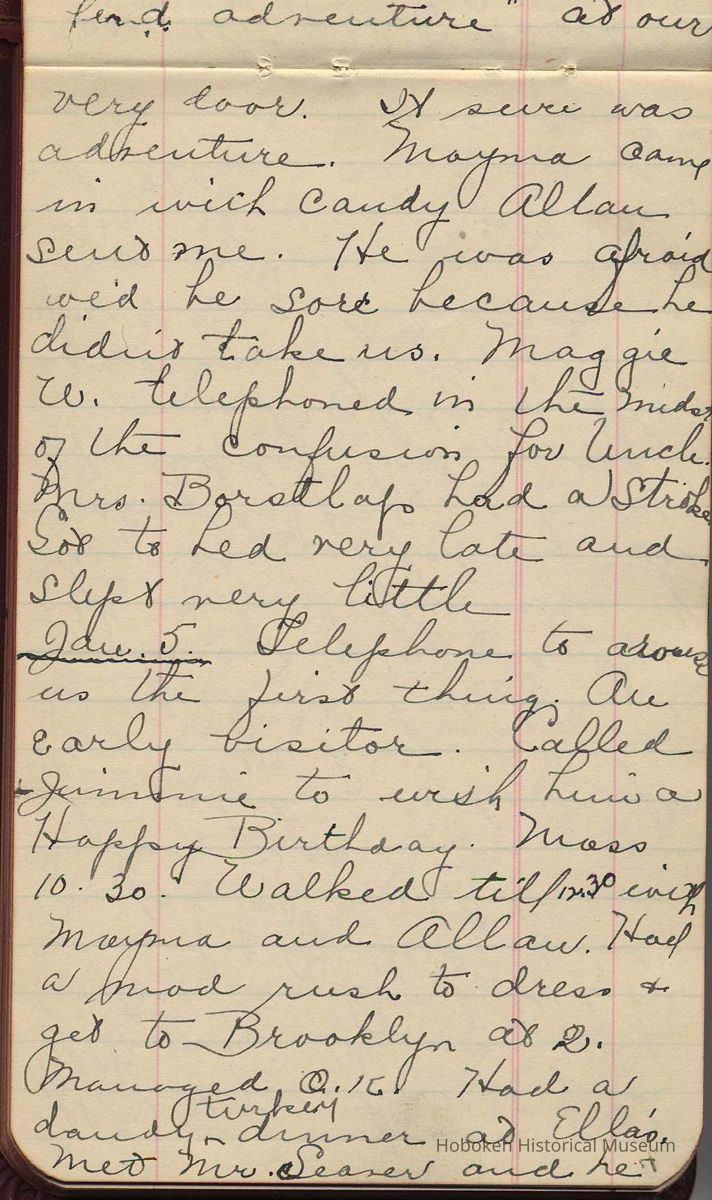 find adventure" at our
very door. It sure was
adventure. Mayma came
in with candy Allan
sent me. He was afraid
we'd be sore because he
didn't take us. Maggie
W. telephoned in the midst
of the confusion for Unck.
Mrs. Borstlap had a Stroke
Got to bed very late and
slept very little
Jan. 5. Telephone to arouse
us the first thing. An
early visitor. Called
Jimmie to wish him a
Happy Birthday. Mass
10.30. Walked till 12.30 with
Mayma and Allan. Had
a mad rush to dress &
get to Brooklyn at 2.
Managed O.K. Had a
turkey
dandy dinner at Ella's.
Hoboken Historical Museum
Met Mr. Seaver and he